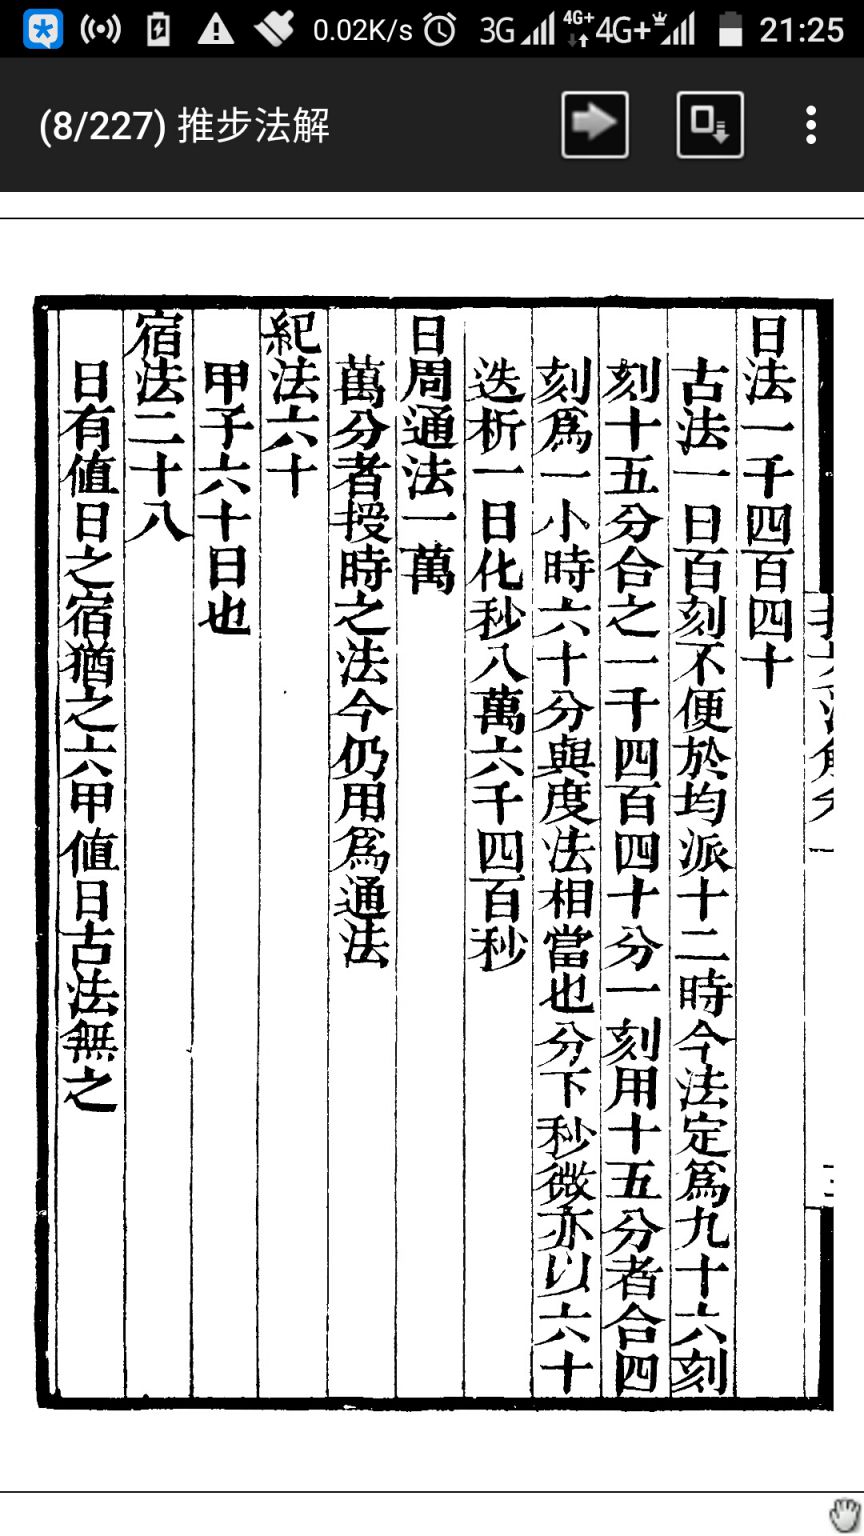 0.02K/s 3G 4G+ 4G+ 21:25
(8/227) 推步法解
日法一千四百四十
古法一日百刻不便於均派十二時今法定爲九十六刻
刻十五分合之一千四百四十分一刻用十五分者合四
刻爲一小時六十分與度法相當也分下秒微亦以六十
迭析一日化秒八萬六千四百秒
日周通法一萬
萬分者授時之法今仍用爲通法
紀法六十
甲子六十日也
宿法二十八
日有値日之宿猶之六甲値日古法無之